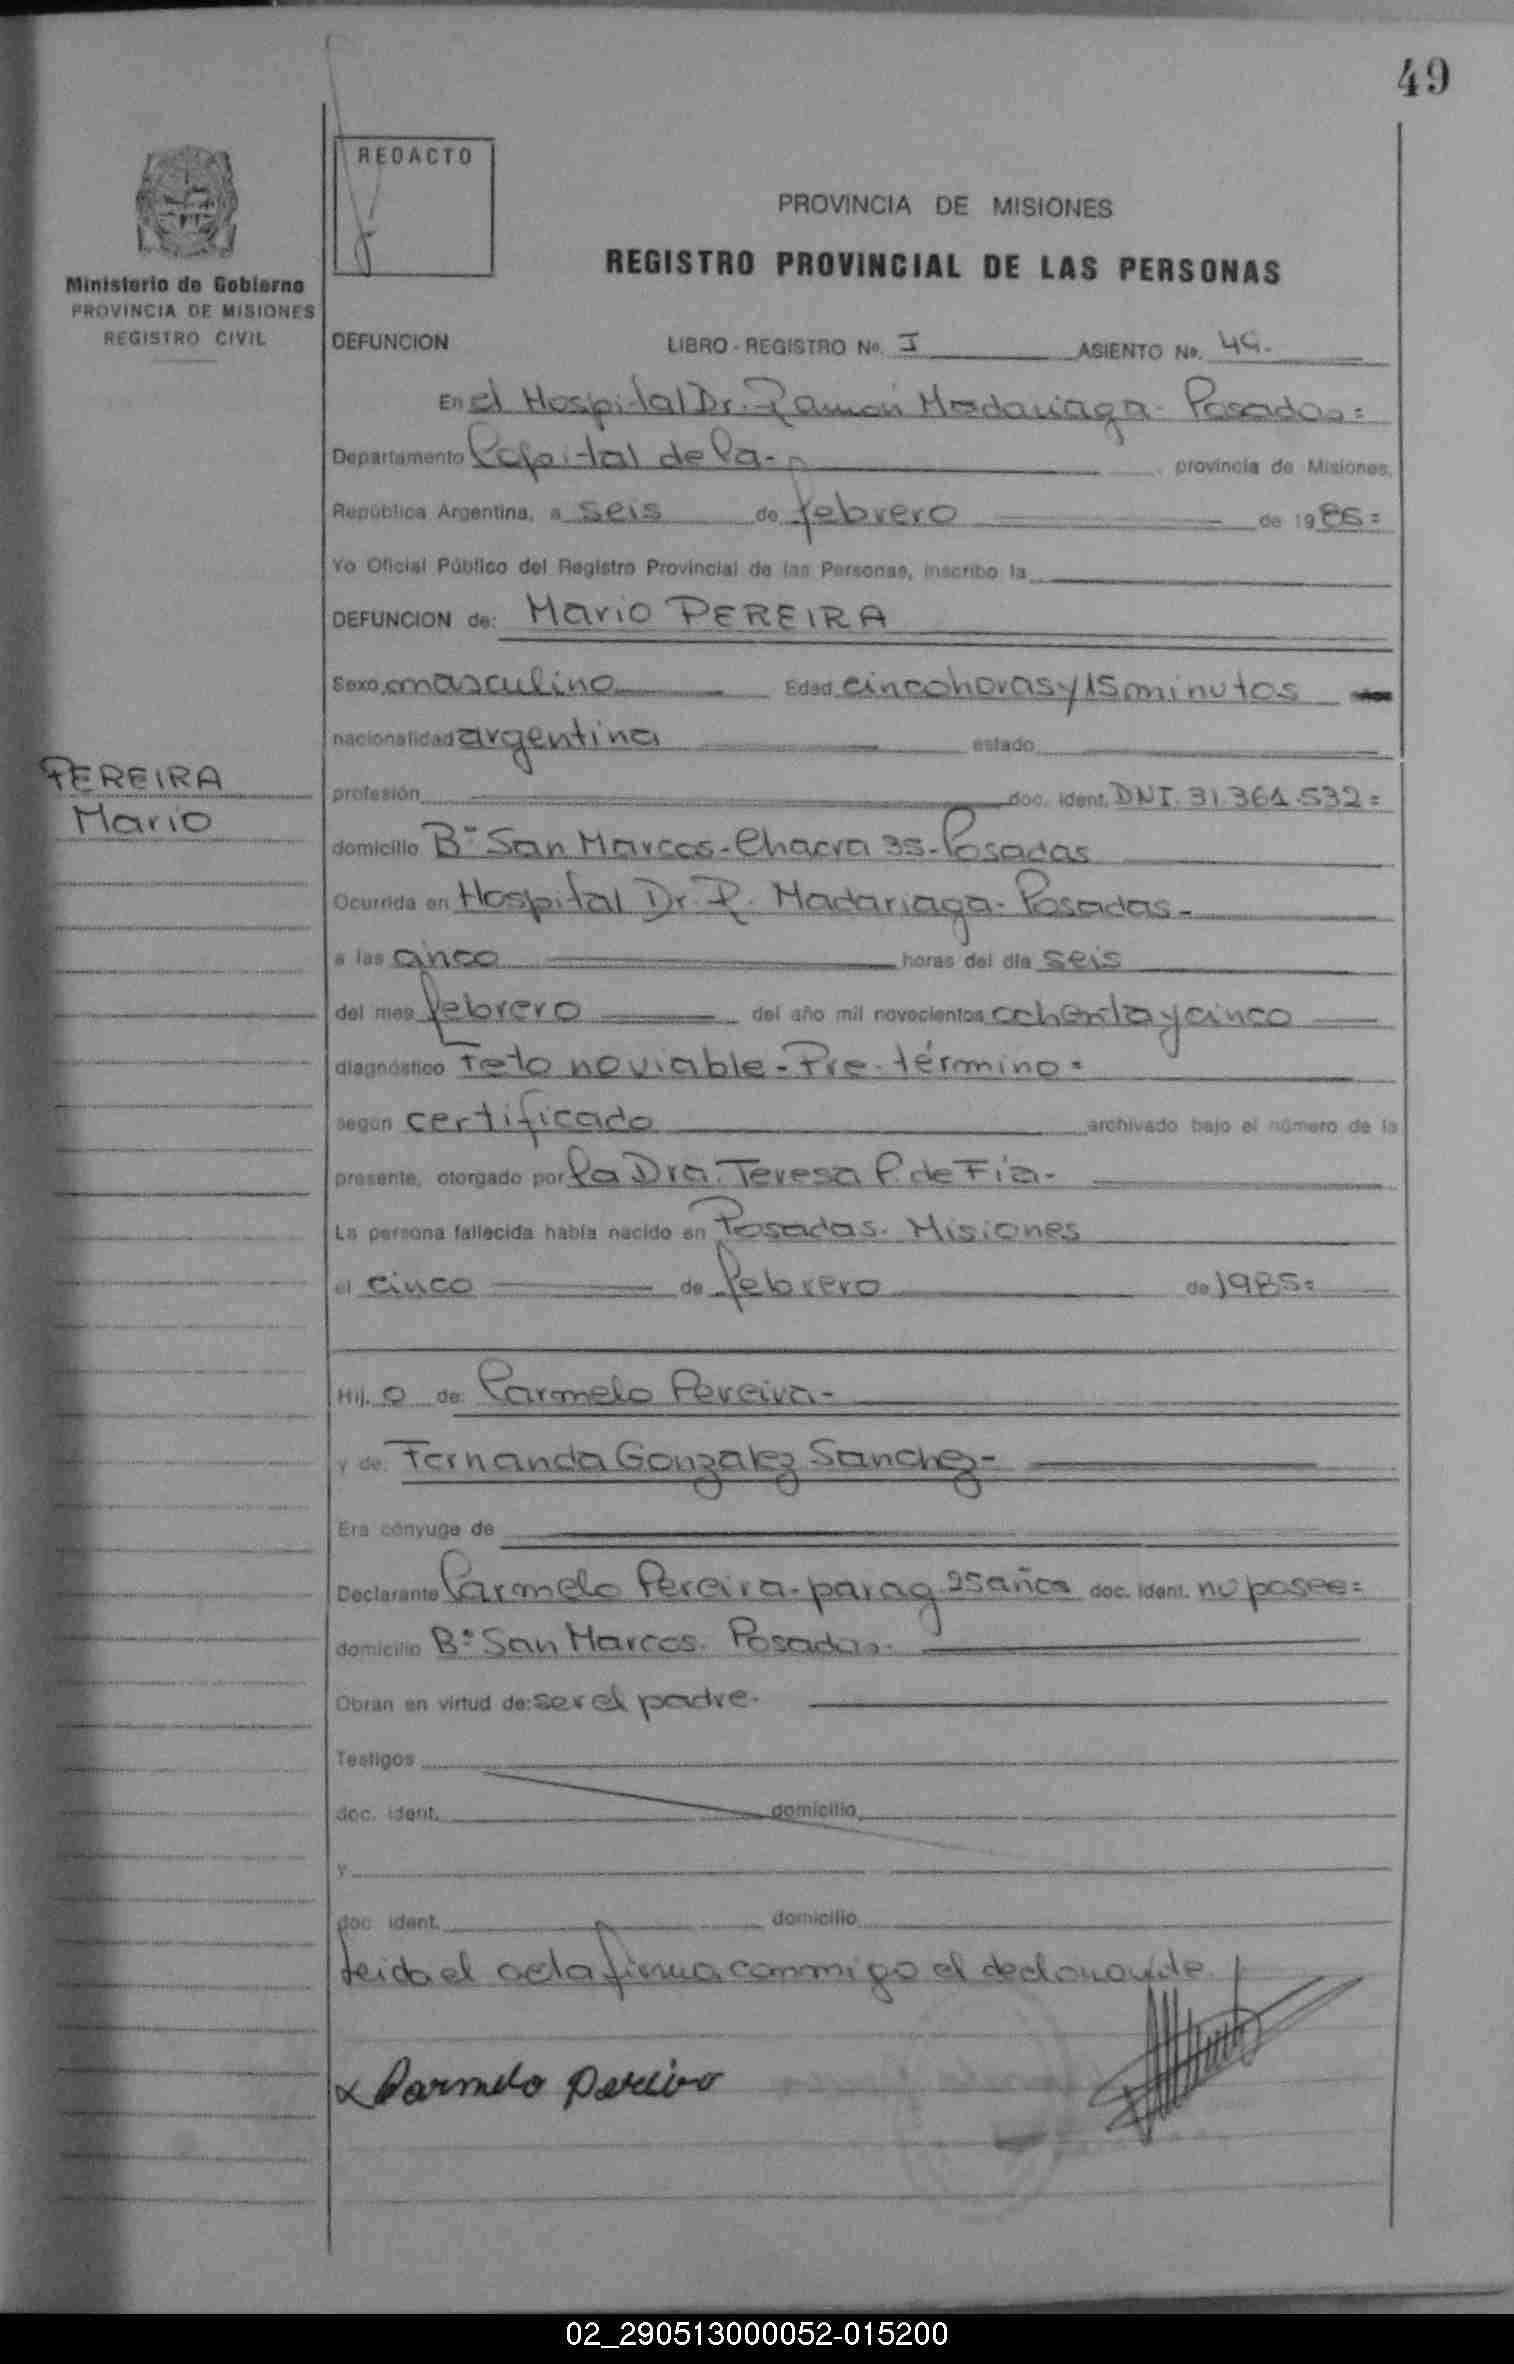 49
REDACTO
PROVINCIA DE MISIONES
REGISTRO PROVINCIAL DE LAS PERSONAS
Ministerio de Gobierno
PROVINCIA DE MISIONES
REGISTRO CIVIL
DEFUNCION LIBRO - REGISTRO Nº. I ASIENTO Nº. 49.
En el Hospital Dr. Ramón Madariaga - Posadas=
Departamento Capital de la - provincia de Misiones,
República Argentina, a seis de febrero de 1985=
Yo Oficial Público del Registro Provincial de las Personas, inscribo la
DEFUNCION de: Mario PEREIRA
Sexo masculino Edad cinco horas y 15 minutos
nacionalidad argentina estado
PEREIRA
Mario
profesión doc. ident. DNI. 31.364.532=
domicilio Bº San Marcos - Chacra 35 - Posadas
Ocurrida en Hospital Dr. R. Madariaga - Posadas -
a las cinco horas del día seis
del mes febrero del año mil novecientos ochenta y cinco
diagnóstico Feto no viable - Pre-término=
según certificado archivado bajo el número de la
presente, otorgado por la Dra. Teresa P. de Fia -
La persona fallecida había nacido en Posadas. Misiones
el cinco de febrero de 1985=
Hij. o de: Carmelo Pereira -
y de: Fernanda Gonzalez Sanchez -
Era cónyuge de
Declarante Carmelo Pereira - parag. 25 años doc. ident. no posee=
domicilio Bº San Marcos. Posadas.
Obran en virtud de: ser el padre.
Testigos
doc. ident. domicilio
y
doc. ident. domicilio
Leida el acta firma conmigo el declarante.
Carmelo Pereira
02_290513000052-015200